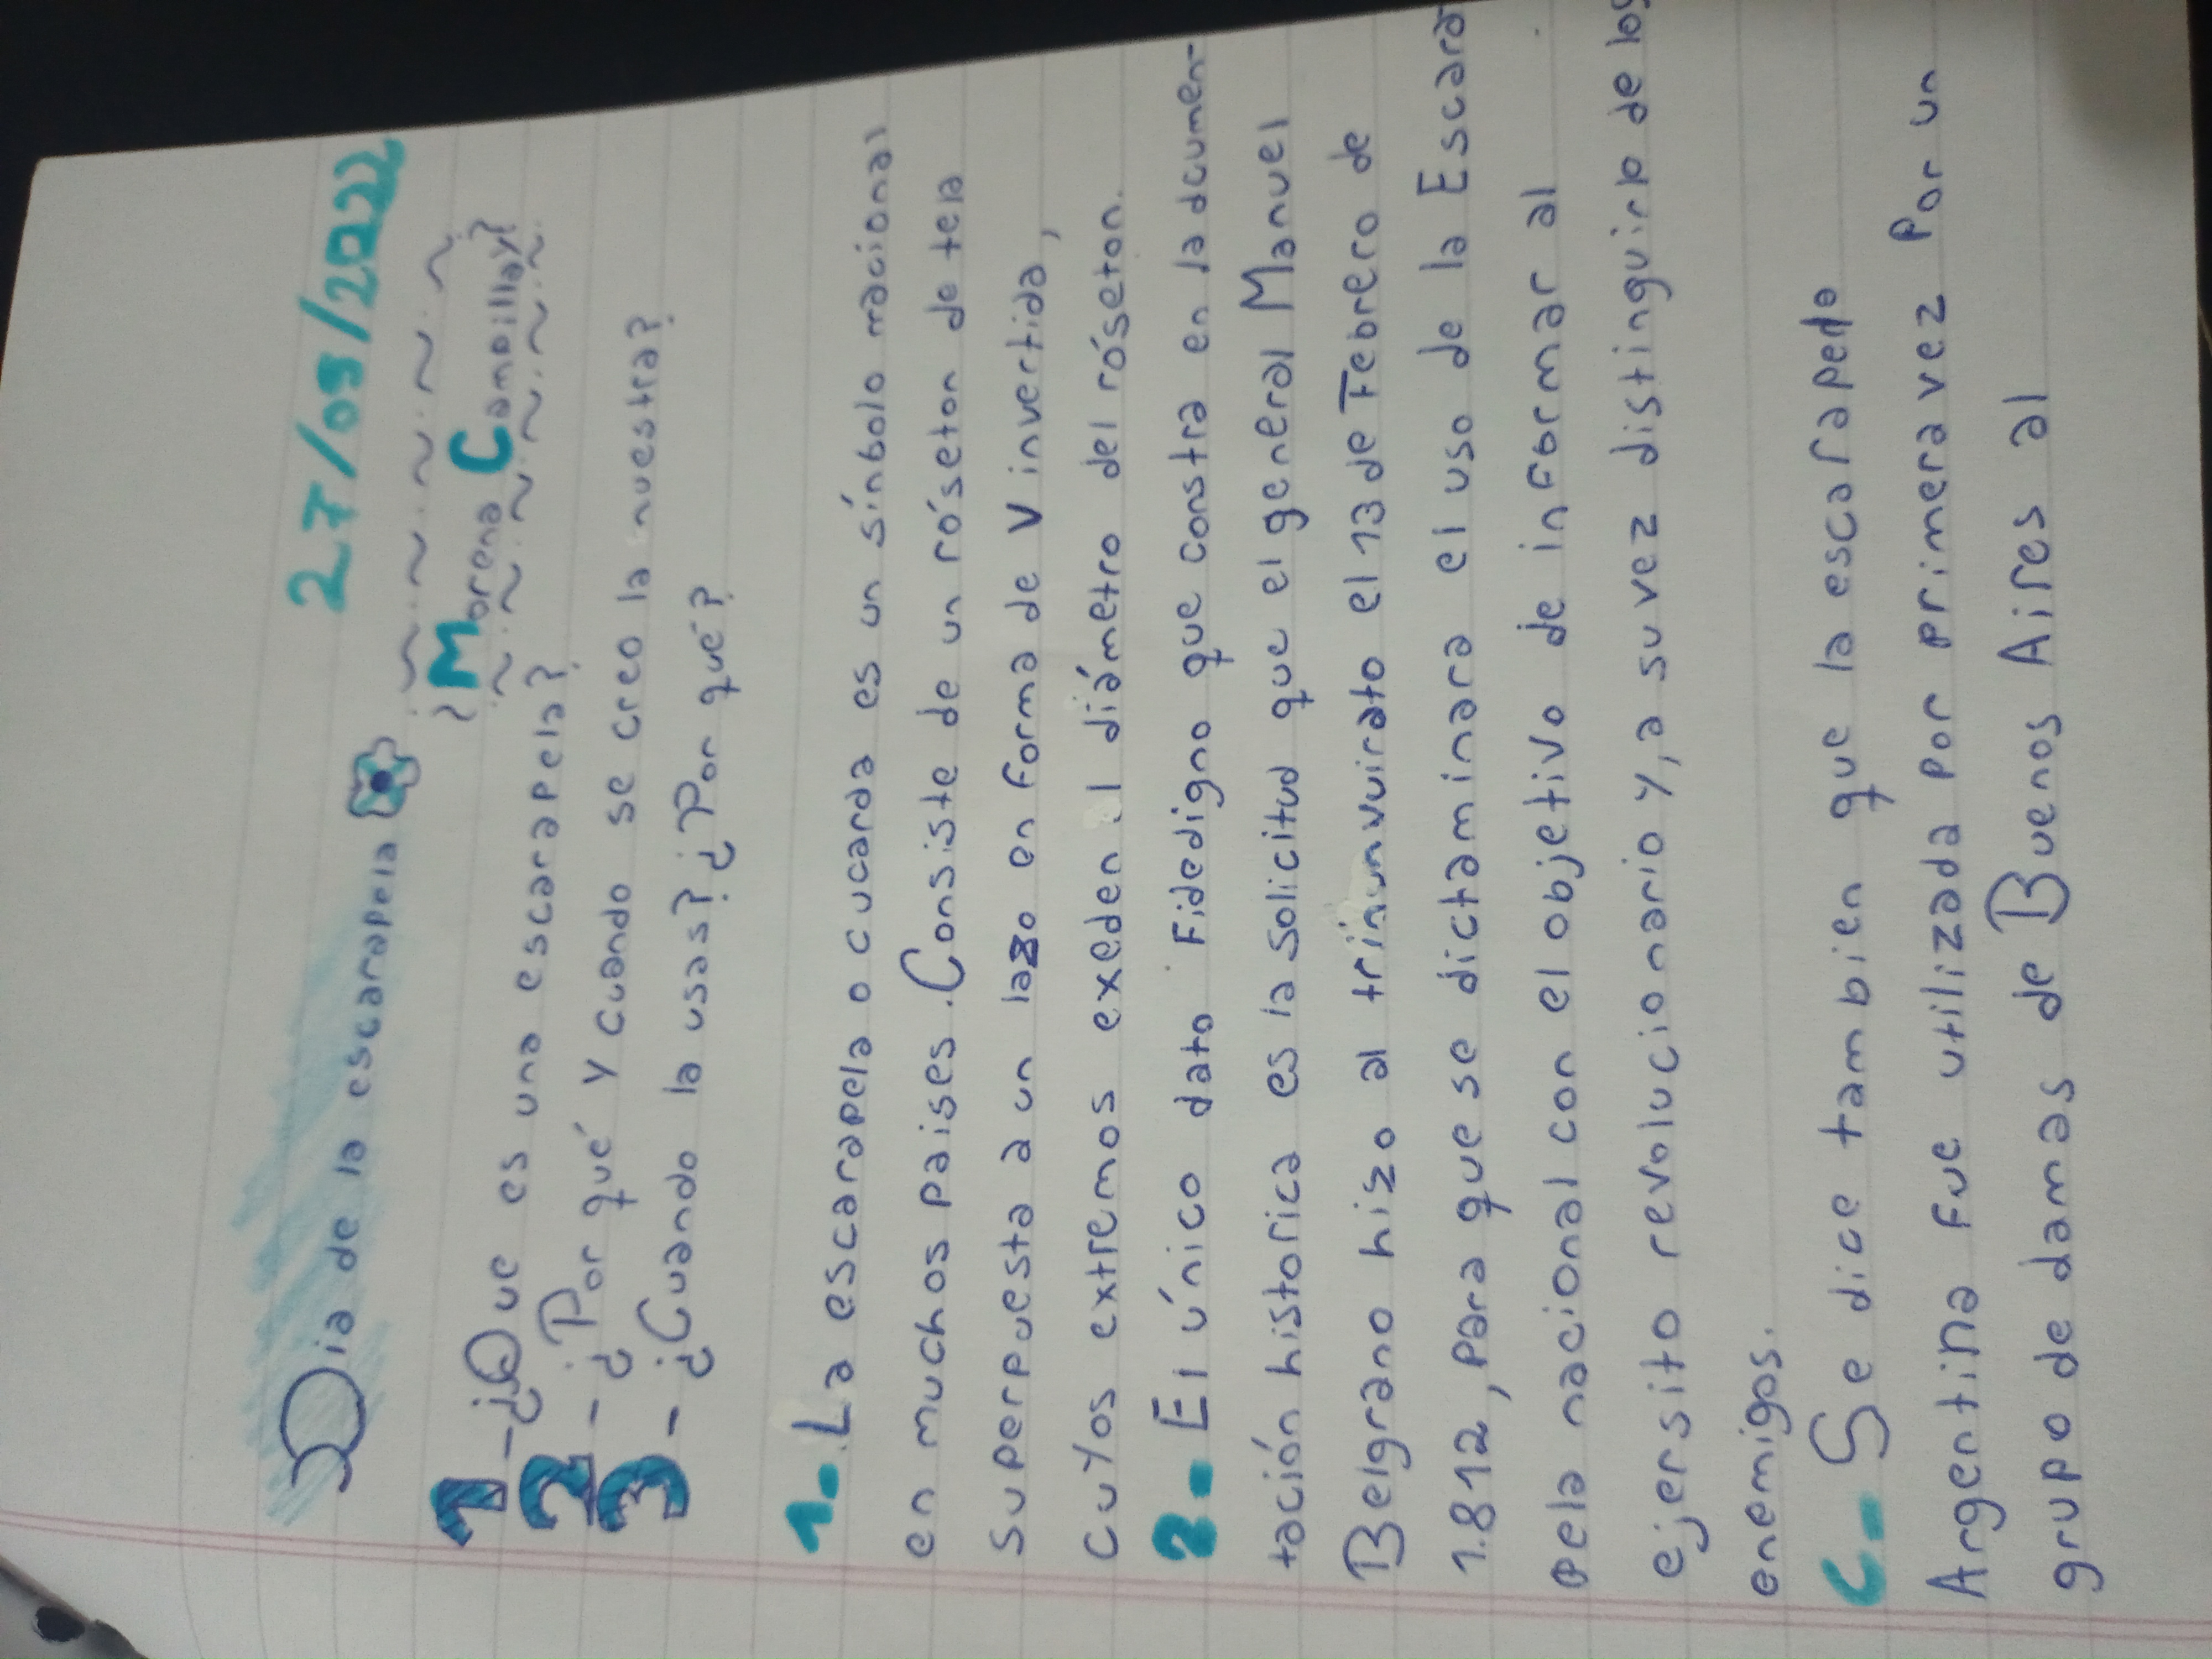 27/05/2022
Dia de la escarapela
¿Morena Campillay?
1-¿Que es una escarapela?
2-¿Por qué y cuando se creo la nuestra?
3-¿Cuando la usas? ¿Por qué?
1-.La escarapela o cucarda es un sínbolo nacional
en muchos paises. Consiste de un róseton de tela
superpuesta a un lazo en forma de V invertida,
cuyos extremos exeden el diámetro del róseton.
2- El único dato Fidedigno que constra en la dcumen-
tación historica es la solicitud que el general Manuel
Belgrano hiso al trinunvuirato el 13 de Febrero de
1.812, para que se dictaminara el uso de la Escara-
pela nacional con el objetivo de informar al
ejersito revolucionario y, a su vez distinguirlo de los
enemigos.
C- Se dice tambien que la escarapela
Argentina fue utilizada por primera vez por un
grupo de damas de Buenos Aires al